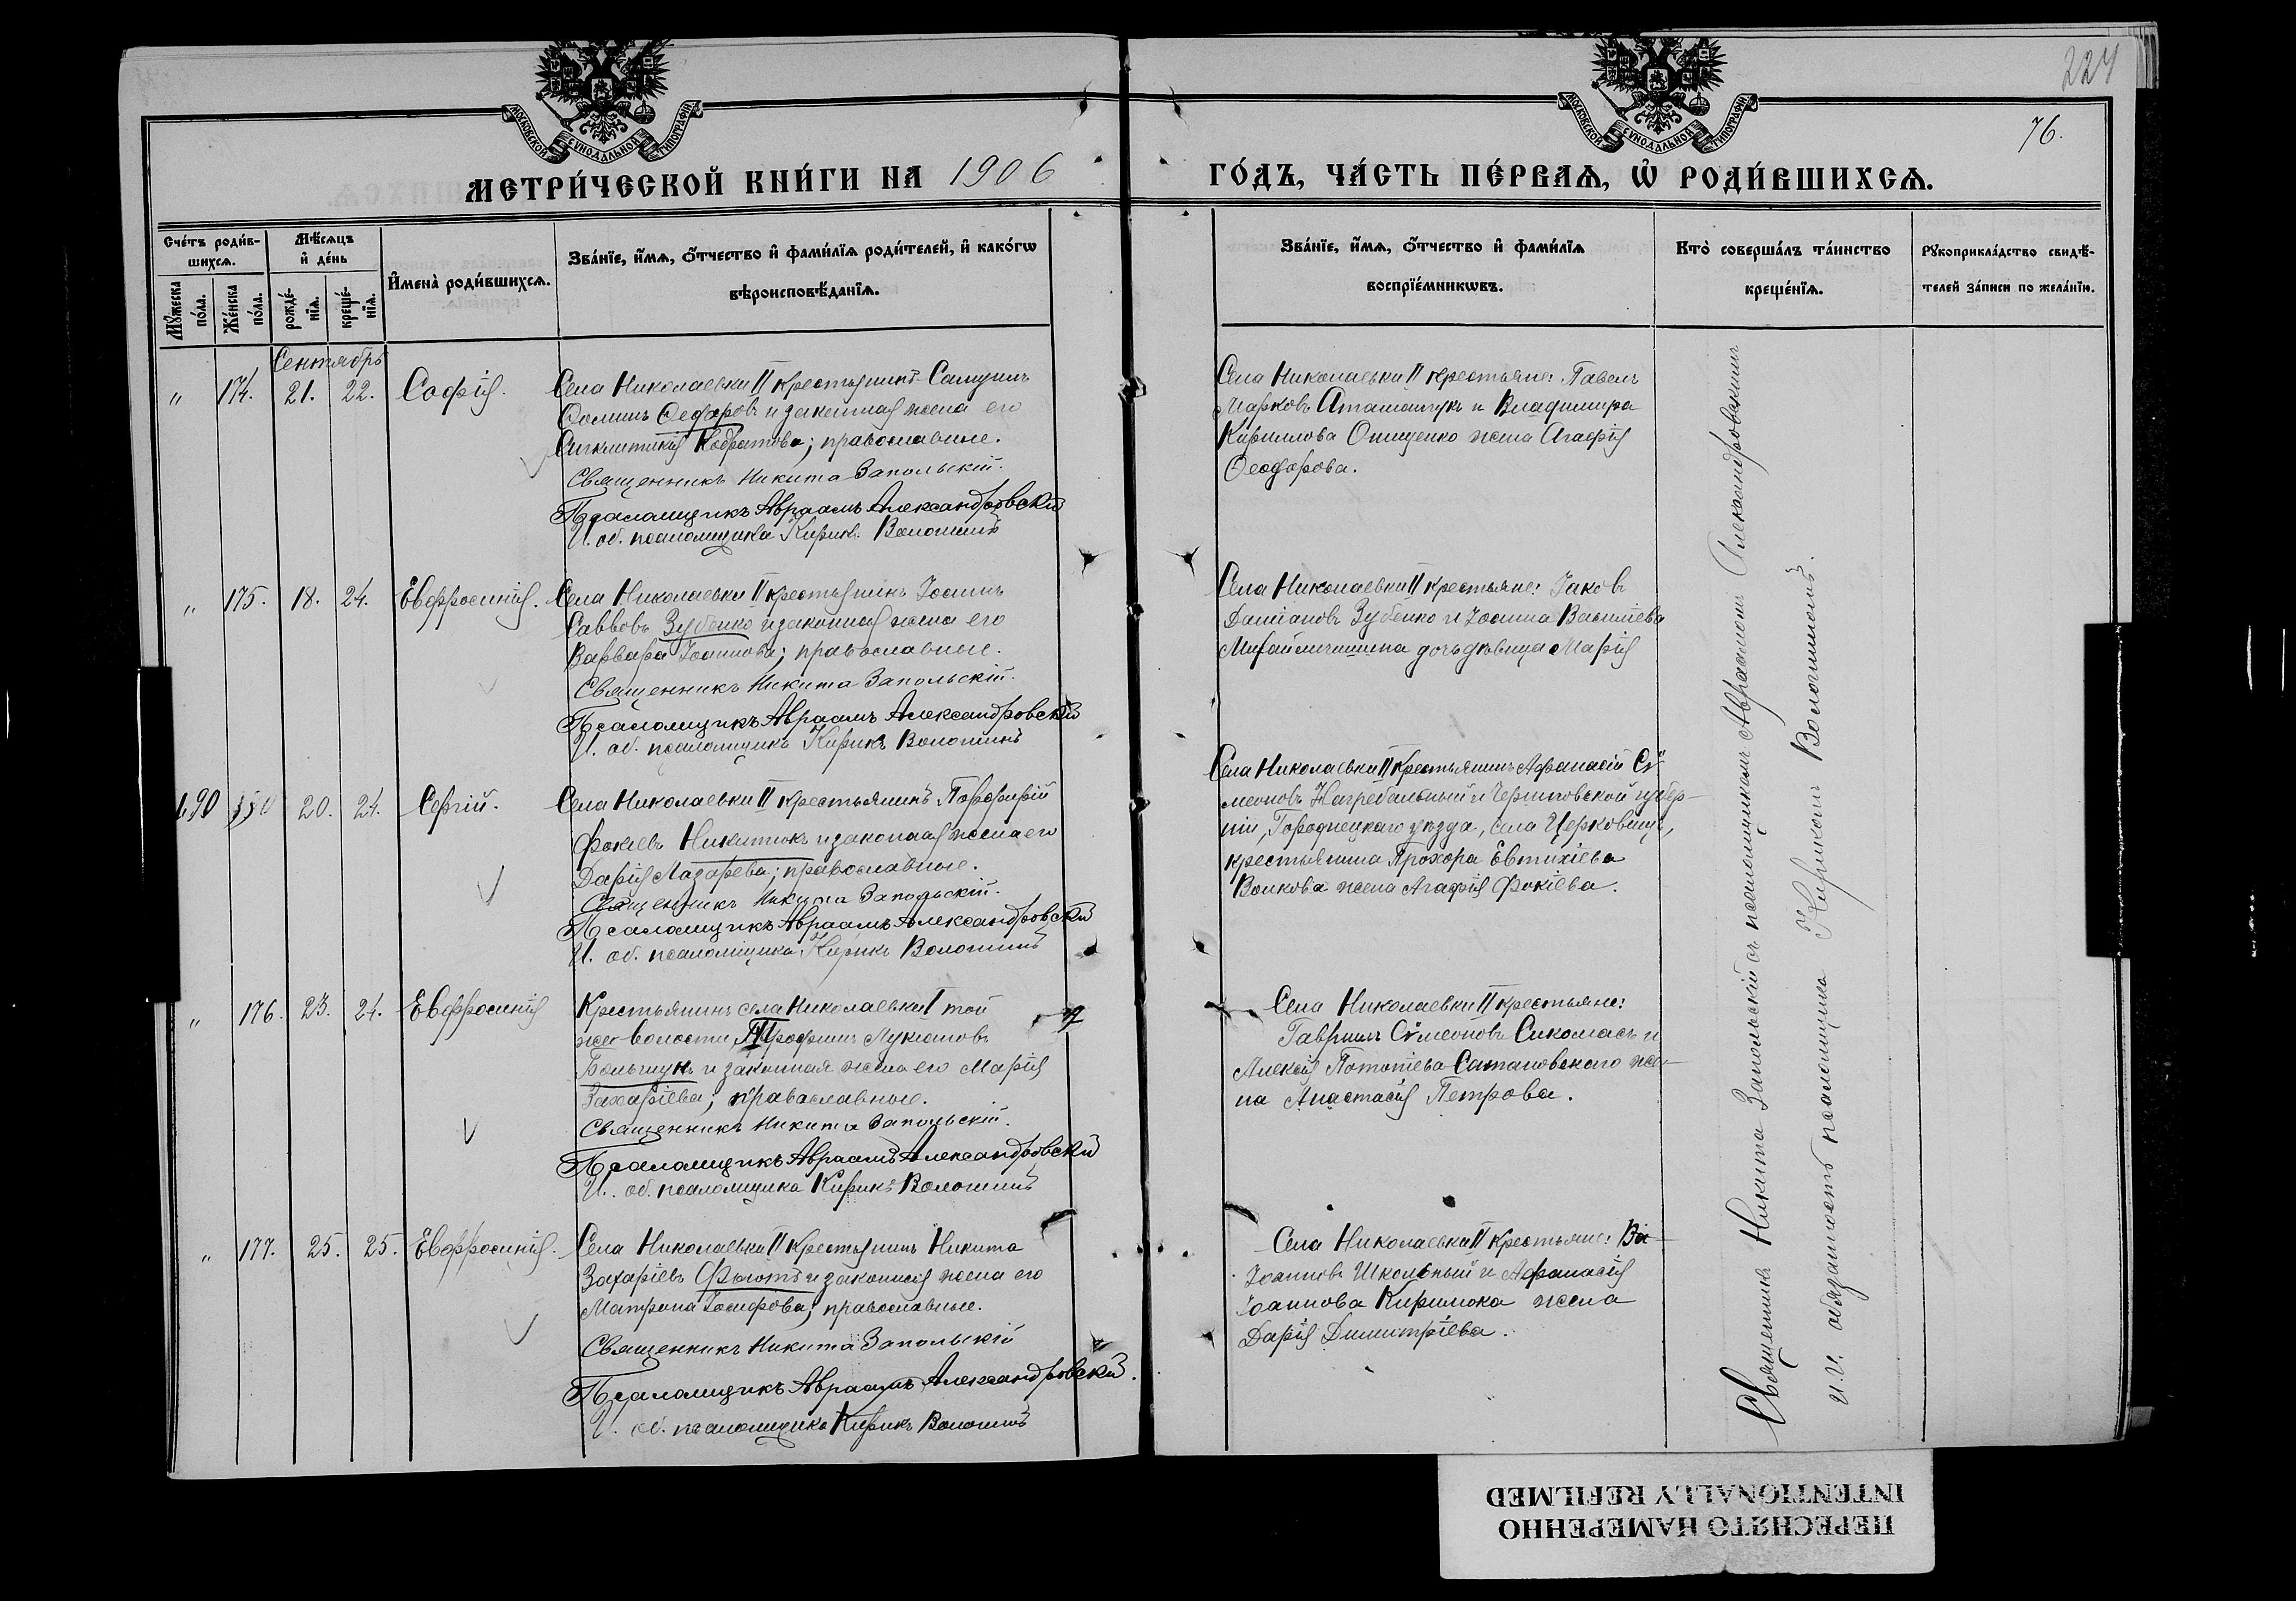 224
76.
МОСКОВСКОЙ СѴНОДАЛЬНОЙ ТИПОГРАФІИ
МОСКОВСКОЙ СѴНОДАЛЬНОЙ ТИПОГРАФІИ
МЕТРИ́ЧЕСКОЙ КНИ́ГИ НА 1906
ГО́ДЪ, ЧА́СТЬ ПЕ́РВАѦ, Ѡ҆ РОДИ́ВШИХСѦ.
Сче́тъ роди́в-
шихсѧ.
Мꙋ́жеска по́ла.
Же́нска по́ла.
Мѣ́сѧцъ
и҆ де́нь
рожде́-
нїѧ.
креще́-
нїѧ.
И҆мена̀ роди́вшихсѧ.
Зва́нїе, и҆́мѧ, ѻ҆́тчество и҆ фами́лїѧ роди́телей, и҆ како́гѡ
вѣроисповѣ́данїѧ.
Зва́нїе, и҆́мѧ, ѻ҆́тчество и҆ фами́лїѧ
воспрїе́мникѡвъ.
Кто̀ соверша́лъ та́инство
креще́нїѧ.
Рꙋкоприкла́дство свидѣ́-
телей за́писи по жела́нїю.
Сентябрь
" 174. 21. 22. Софія.
Села Николаевки II крестьянинъ Самуилъ
Ѳоминъ Ѳедоровъ и законная жена его
Синклитикія Кодратова; православные.
Священникъ Никита Запольскій.
Псаломщикъ Авраамъ Александровскій
И. об. псаломщика Кирикъ Волошинъ
Села Николаевки II крестьяне: Павелъ
Марковъ Аташащукъ и Владимира
Кириллова Онищенко жена Агафія
Ѳеодорова.
" 175. 18. 24. Евфросинія.
Села Николаевки II крестьянинъ Іоаннъ
Саввовъ Зубенко и законная жена его
Варвара Іоаннова; православные.
Священникъ Никита Запольскій.
Псаломщикъ Авраамъ Александровскій
И. об. псаломщика Кирикъ Волошинъ
Села Николаевки II крестьяне: Іаковъ
Даміановъ Зубенко и Іоанна Василіева
дочь дѣвица Марія
190 20. 24. Сергій.
Села Николаевки II крестьянинъ Порфирій
Фокіевъ Никитюкъ и законная жена его
Дарія Лазарева; православные.
Священникъ Никита Запольскій.
Псаломщикъ Авраамъ Александровскій
И. об. псаломщика Кирикъ Волошинъ
Села Николаевки II крестьянинъ Афанасій Сѵ-
меоновъ Нагребальный и Черниговской губер-
ніи, Городнецкаго уѣзда, села Церковищъ,
крестьянина Прохора Евтихіева
Волкова жена Агафія Фокіева.
" 176. 23. 24. Евфросинія
Крестьянинъ села Николаевки I той
же волости, Трофимъ Лукіановъ
Больщукъ и законная жена его Марія
Захаріева; православные.
Священникъ Никита Запольскій.
Псаломщикъ Авраамъ Александровскій
И. об. псаломщика Кирикъ Волошинъ
Села Николаевки II крестьяне:
Гавріилъ Сѵмеоновъ Сикомасъ и
Алексія Потапіева Сатановскаго же-
на Анастасія Петрова.
" 177. 25. 25. Евфросинія.
Села Николаевки II крестьянинъ Никита
Захаріевъ и законная жена его
Матрона Іосифова; православные.
Священникъ Никита Запольскій
Псаломщикъ Авраамъ Александровскій.
И. об. псаломщика Кирикъ Волошинъ
Села Николаевки II крестьяне:
Іоанновъ Школьный и Афанасія
Іоаннова Кирилюка жена
Дарія Димитріева.
Священникъ Никита Запольскій съ псаломщикомъ Авраамомъ Александровскимъ
и и. обязанность псаломщика Кирикомъ Волошинымъ.
ПЕРЕСНЯТО НАМЕРЕННО
INTENTIONALLY REFILMED